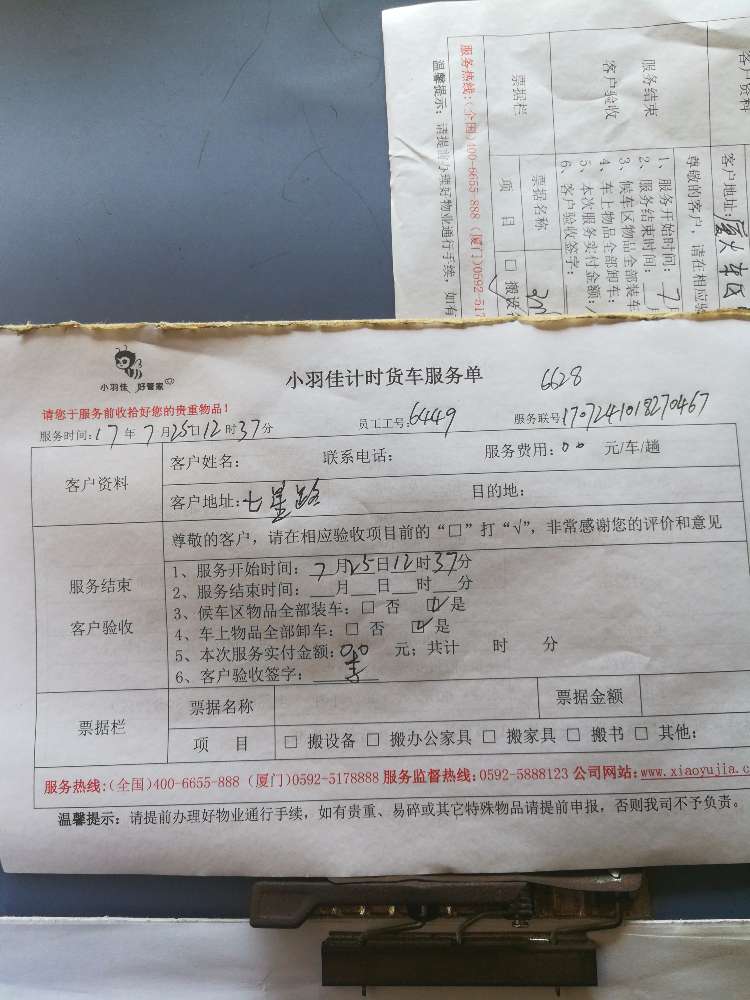 客户资料
客户地址：厦大车区
服务结束
客户验收
尊敬的客户，请在相应验
1、服务开始时间：7月
2、服务结束时间：
3、候车区物品全部装车
4、车上物品全部卸车：
5、本次服务实付金额：
6、客户验收签字：
票据栏
票据名称
项 目 □ 搬设
服务热线:(全国)400-6655-888 (厦门)0592-517
温馨提示：请提前办理好物业通行手续，如有
小羽佳 好管家
小羽佳计时货车服务单
6628
请您于服务前收拾好您的贵重物品！
服务时间:17年7月25日12时37分 员工工号:6449 服务联号1707241018270467
客户资料
客户姓名： 联系电话： 服务费用：00 元/车/趟
客户地址:七星路 目的地：
服务结束
客户验收
尊敬的客户，请在相应验收项目前的“□”打“√”，非常感谢您的评价和意见
1、服务开始时间：7月25日12时37分
2、服务结束时间：__月__日__时__分
3、候车区物品全部装车：□ 否 ☑是
4、车上物品全部卸车：□ 否 ☑是
5、本次服务实付金额：00 元；共计 时 分
6、客户验收签字：李
票据栏
票据名称 票据金额
项 目 □ 搬设备 □ 搬办公家具 □ 搬家具 □ 搬书 □ 其他：
服务热线:(全国)400-6655-888 (厦门)0592-5178888 服务监督热线:0592-5888123 公司网站:www.xiaoyujia.c
温馨提示：请提前办理好物业通行手续，如有贵重、易碎或其它特殊物品请提前申报，否则我司不予负责。